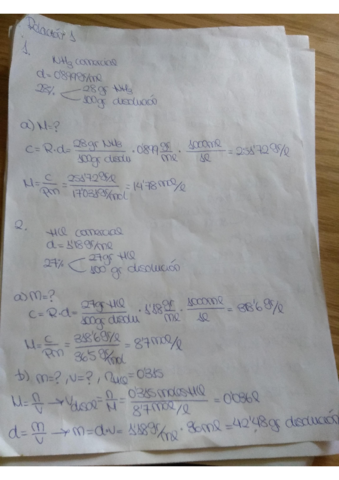 1.
NH3 comercial
d=0'899g/ml
28% 28 gr NH3
100gr disolución
a) M=?
C=R·d= 28gr NH3 / 100gr disolu · 0'899 gr / ml · 1000ml / 1l = 251'72 gr/l
M= C / Pm = 251'72 gr/l / 17'031 gr/mol = 14'78 mol/l
2.
HCl comercial
d=1'18 gr/ml
27% 27gr HCl
100 gr disolución
a) M=?
C=R·d= 27gr HCl / 100gr disolu · 1'18 gr / ml · 1000ml / 1l = 318'6 gr/l
M= C / Pm = 318'6 gr/l / 36'5 gr/mol = 8'7 mol/l
b) m=?, v=?, nHCl=0'315
M= n / V → Vdisol= n / M = 0'315 moles HCl / 8'7 mol/l = 0'036l
d= m / V → m=d·v= 1'18 gr/ml · 36 ml = 42'48 gr disolución